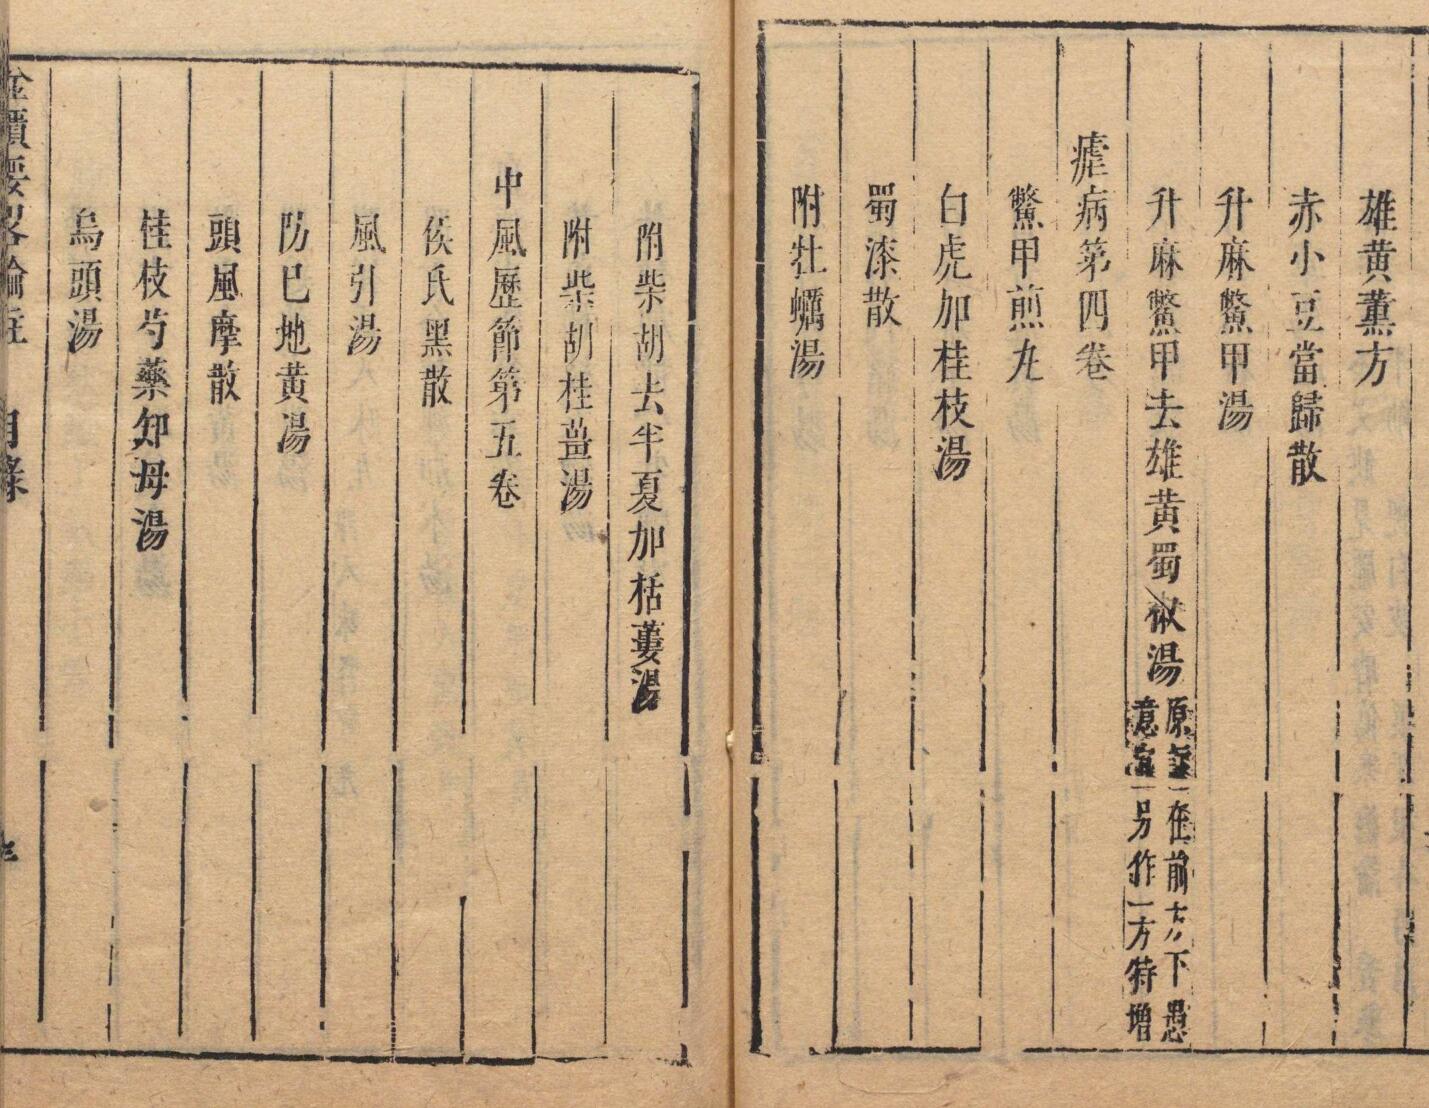 雄黄薰方
赤小豆當歸散
升麻鱉甲湯
升麻鱉甲去雄黄蜀椒湯
原在前方下愚
意另作一方特增
瘧病第四卷
鱉甲煎丸
白虎加桂枝湯
蜀漆散
附牡蠣湯
附柴胡去半夏加栝蔞湯
附柴胡桂薑湯
中風歷節第五卷
侯氏黑散
風引湯
防已地黄湯
頭風摩散
桂枝芍藥知母湯
烏頭湯
金匱要畧論註 目錄